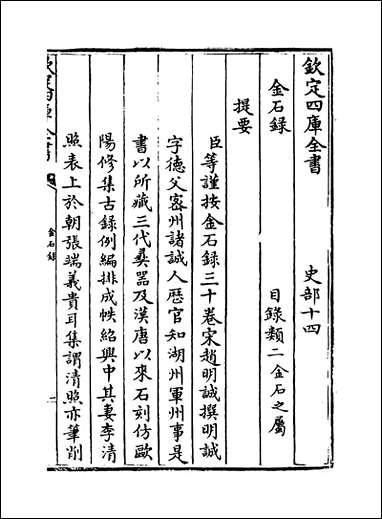 欽定四庫全書　史部十四
金石録　目録類二金石之屬
提要
臣等謹按金石録三十卷宋趙明誠撰明誠
字德父宻州諸誠人歴官知湖州軍州事是
書以所藏三代彛器及漢唐以來石刻仿歐
陽修集古録例編排成帙紹興中其妻李清
照表上於朝張端義貴耳集謂清照亦筆削
金石録